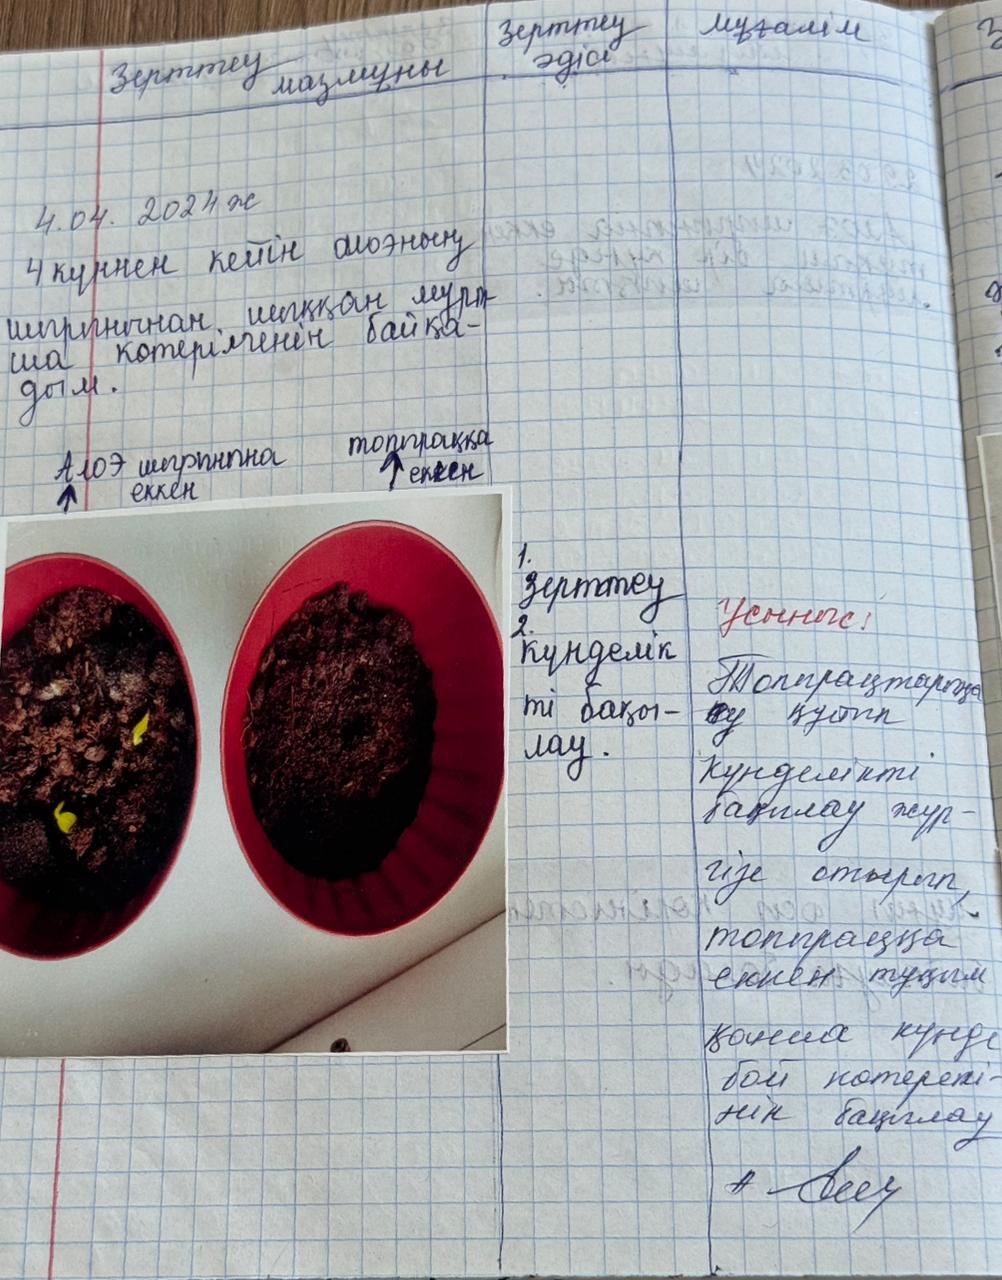 Зерттеу
мазмұны
Зерттеу
әдісі
мұғалім
4.04. 2024ж
4 күннен кейін алоэның
шырынынан шыққан мұрт-
ша көтерілгенін байқа-
дым.
Алоэ шырынына
еккен
топыраққа
еккен
1.
Зерттеу
2.
Күнделік
ті бақы-
лау.
Ұсыныс:
Топырақтарыңа
су құйып
Күнделікті
бақылау жүр-
гізе отырып,
топыраққа
еккен тұқым
қанша күнде
бой көтерені-
нін бақылау